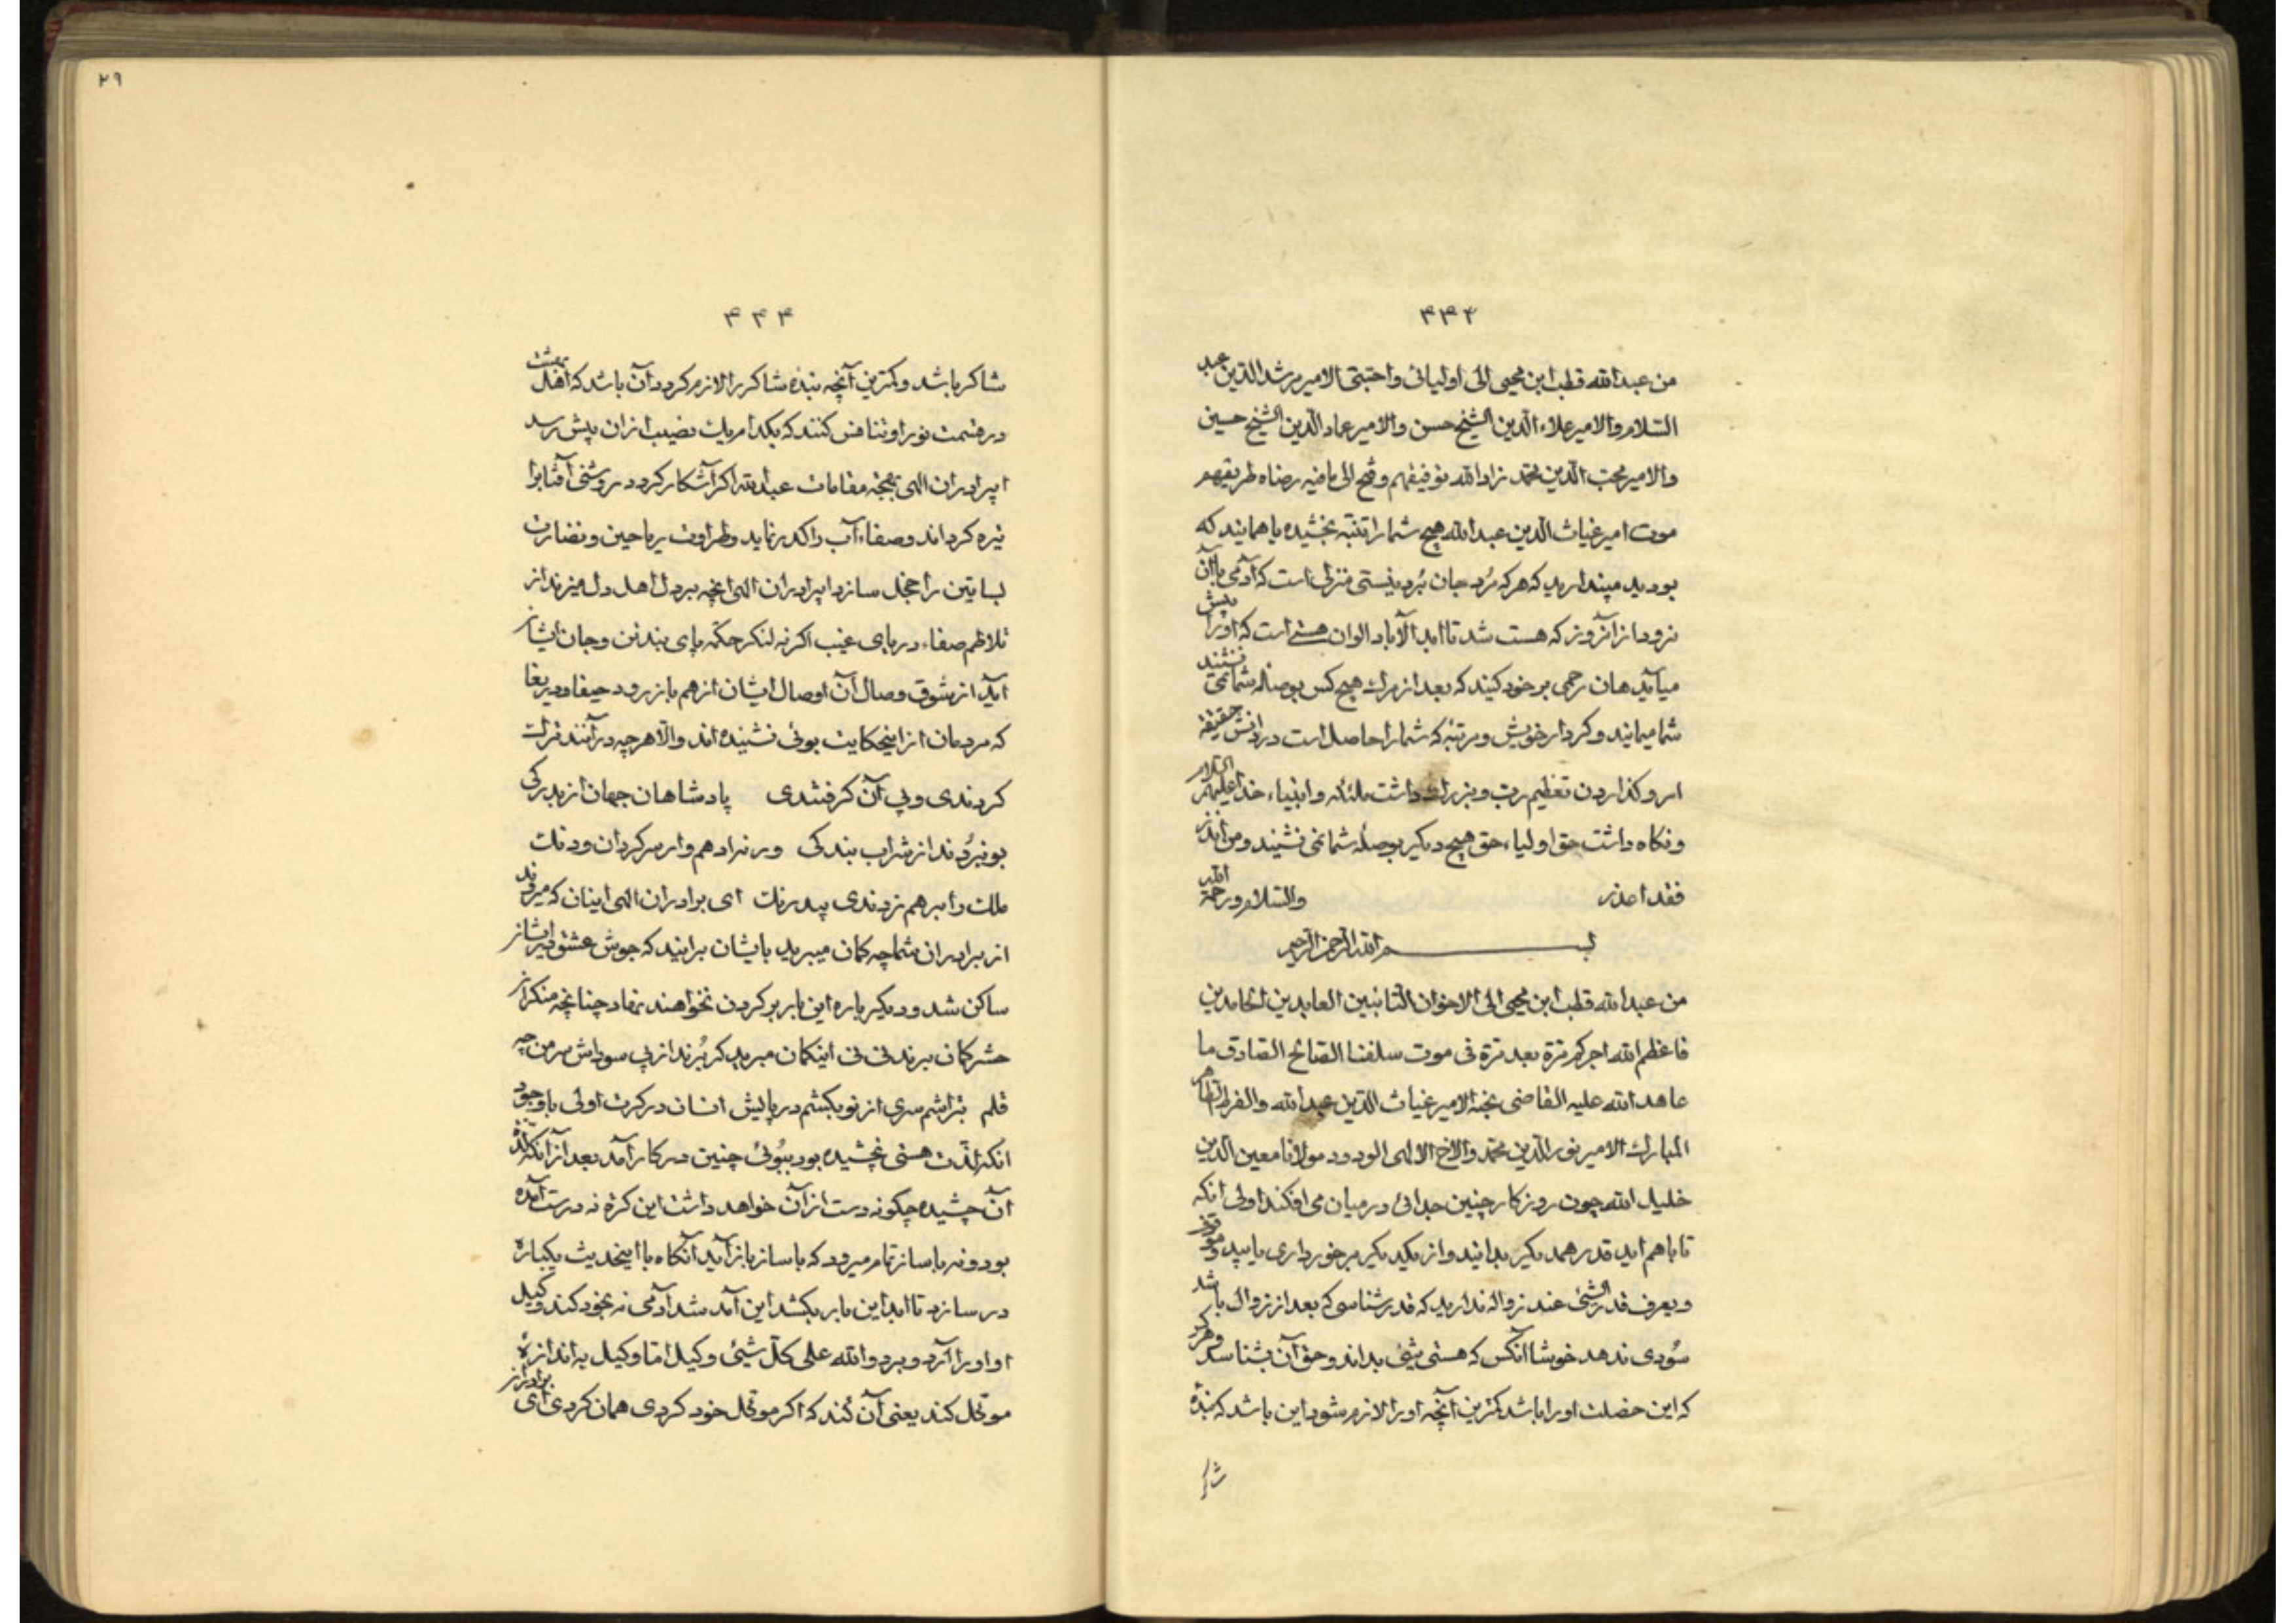 ۳۳۲
من عبدالله قطب ابن محیی الی اولیائی واحبتی الامیر مرشدالدین عبد
السّلام والامیر علاءالدین الشیخ حسن والامیر عمادالدین الشیخ حسین
والامیر محبّ الدین محمّد زادالله توفیقهم وفتح الی مافیه رضاه طریقهم
موت امیر غیاث الدین عبدالله هیچ شما را تنبّه بخشیده یا همانید که
بودید مپندارید که هر که مُرد جان بُرد نیستی منزلی است که آدمی باآن
نرود از آنروز که هست شد تا ابدالآباد الوان هستی است که اورا پیش
میآید هان رحمی بر خود کنید که بعد از مرك هیچ کس بوصلۀ شما نمی نشیند
شما میمانید و کردار خویش و مرتبۀ که شما را حاصل است در دانش حقیقة
امر و کذاردن تعظیم رب و بزرك داشت ملئکه وانبیاء خدا علیهم السّلام
و نکاه داشت حق اولیاء حق هیچ دیکر بوصلۀ شما نمی نشیند ومن انذر
فقد اعذر والسّلام ورحمة الله
بسم الله الرحمن الرحیم
من عبدالله قطب ابن محیی الی الاخوان التائبین العابدین الحامدین
فاعظم الله اجرکم مرّة بعد مرّة فی موت سلفنا الصّالح الصّادق ما
عاهدالله علیه القاضی نحبه الامیر غیاث الدّین عبدالله والفرط الطّاهر
المبارك الامیر نورالدّین محمّد والاخ الالهی الودود مولانا معین الدین
خلیل الله چون روزکار چنین جدائی در میان می افکند اولی آنکه
تا باهم اید قدر همدیکر بدانید واز یکدیکر برخورداری یابید و
ویعرف قدر الشّئ عند زواله ندارید که قدرشناسی که بعد از زوال باشد
سُودی ندهد خوشا آنکس که هستی شیئ بداند وحق آن بشناسد و هر کرا
که این خصلت اورا باشد کمترین آنچه اورا لازم شود این باشد که بنده
شاکر
۲۹
۳۳۳
شاکر باشد و کمترین آنچه بنده شاکر را لازم کردد آن باشد که اهل
در قسمت نور او تنافس کنند که بکدام یك نصیب ازان بیش رسد
ایبرادران الهی بهجة مقامات عبدالله اکر آشکار کردد روشنی آفتابرا
تیره کرداند و صفاء آب را کدر نماید وطراوت ریاحین ونضارت
بساتین را خجل سازد ایبرادران الهی آنچه بر دل اهل دل میزند از
تلاطم صفاء دریای غیب اکر نه لنکر حکمة پای بند تن وجان ایشان
آید از شوق وصال آن اوصال ایشان از هم باز رود حیفا ودریغا
که مردمان از اینحکایت بوئی نشنیده اند والّا هر چه در آنند فرات
کردندی و پی آن کرفتندی پادشاهان جهان از بدرکی
بو نبرُدند از شراب بندکی ورنه ادهم وار سرکردان ودنك
ملك را برهم زدندی بیدرنك ای برادران الهی اینان که میروند
از برادران شما چه کمان میبرید بایشان برانید که جوش عشق دیرایشان
ساکن شد ودیکر باره این بار بر کردن نخواهند نهاد چنانچه منکران
حشر کمان برند نی نی اینکمان مبرید کر بُرند از پی سوداش سر من چه
قلم بتراشم سری از نو بکشم در پایش انسان در کرت اولی باوجود
آنکه لذّت هستی نچشیده بود ببُوئی چنین در کار آمد بعد از آنکه لذّت
آن چشیده چکونه دست از آن خواهد داشت این کرّه نه درست آمده
بود و نه با ساز تمام میرود که با ساز باز آید آنکاه با اینحدیث یکباره
در سازد تا ابد این بار بکشد این آمد شد آدمی نه بخود کند وکیل
او اورا آرد وبرد والله علی کلّ شیئ وکیل امّا وکیل به اندازۀ
موکّل کند یعنی آن کند که اکر موکّل خود کردی همان کردی ای برادران